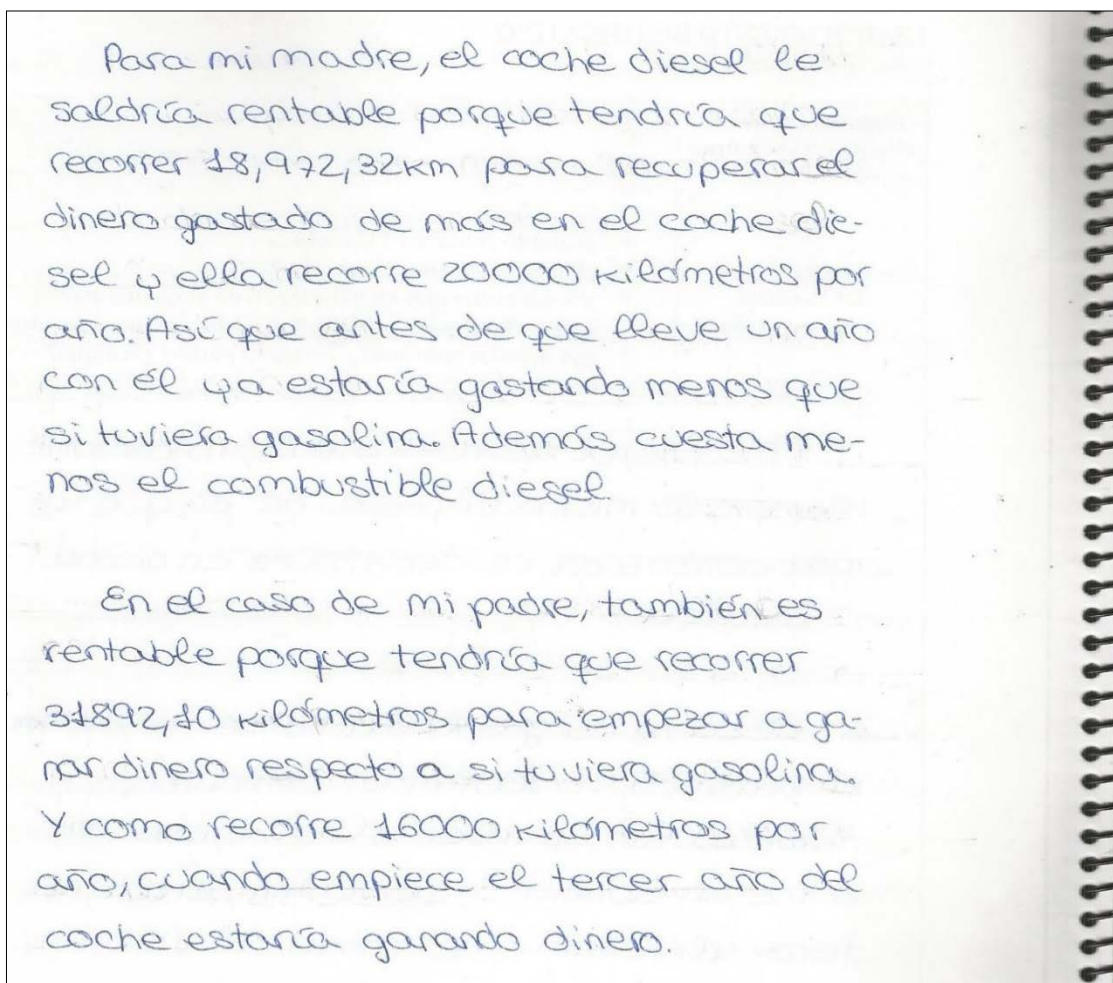 Para mi madre, el coche diesel le
saldría rentable porque tendría que
recorrer 18,972,32km para recuperar el
dinero gastado de más en el coche die-
sel y ella recorre 20000 kilómetros por
año. Así que antes de que lleve un año
con él ya estaría gastando menos que
si tuviera gasolina. Además cuesta me-
nos el combustible diesel.
En el caso de mi padre, también es
rentable porque tendría que recorrer
31892,10 kilómetros para empezar a ga-
nar dinero respecto a si tuviera gasolina.
Y como recorre 16000 kilómetros por
año, cuando empiece el tercer año del
coche estaría ganando dinero.